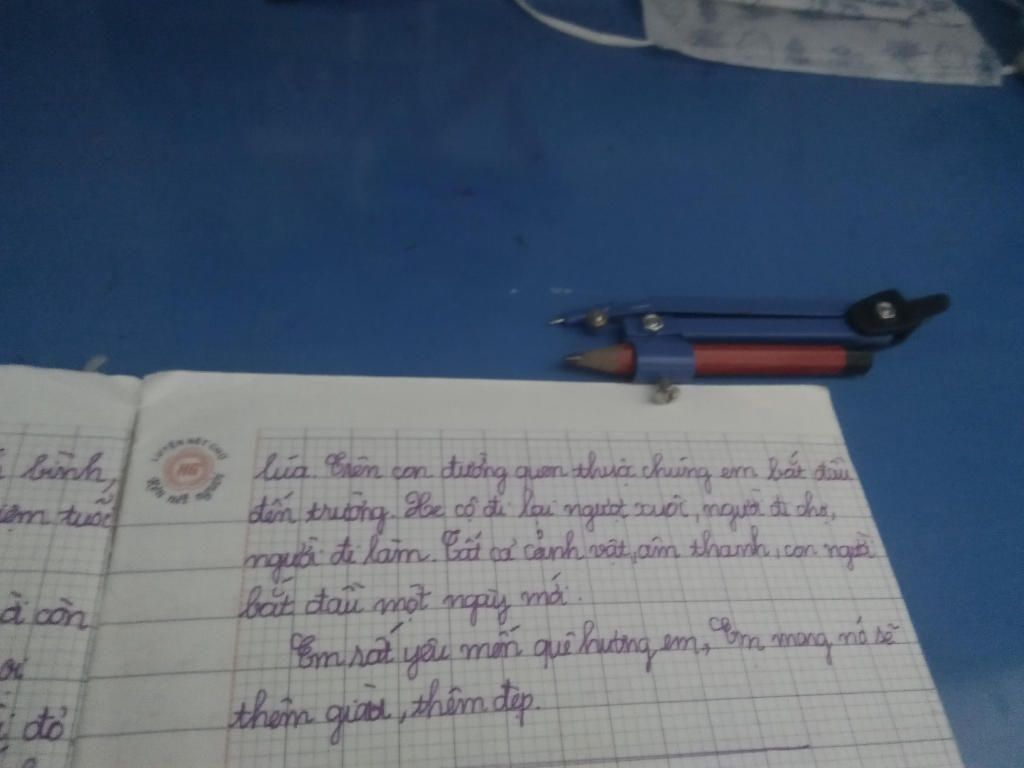 bình,
tuổi
à còn
đỏ
LUYỆN NÉT CHỮ
HG
RÈN NẾT NGƯỜI
lúa. Trên con đường quen thuộc chúng em bắt đầu
đến trường. Xe cộ đi lại ngượt xuôi, người đi chợ,
người đi làm. Tất cả cảnh vật, âm thanh, con người
bắt đầu một ngày mới.
Em rất yêu mến quê hương em, Em mong nó sẽ
thêm giàu, thêm đẹp.